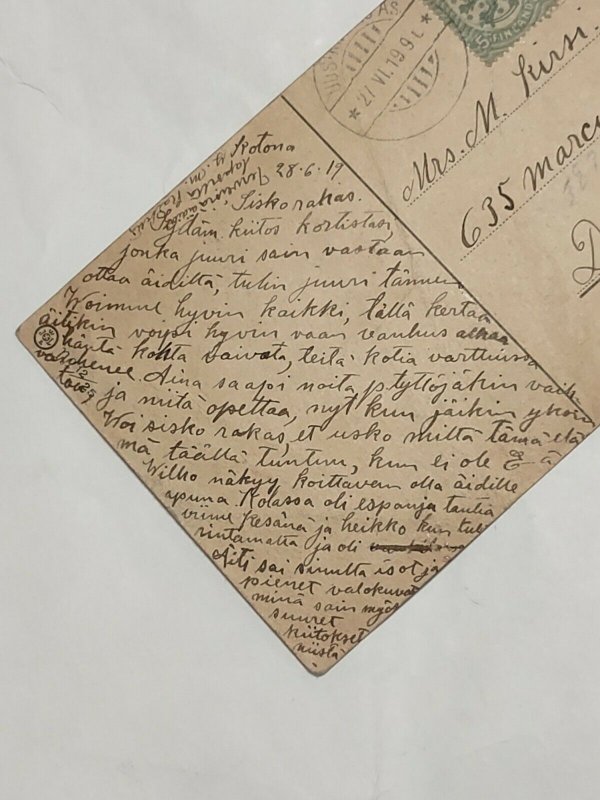 FINLAND
27.VI.19
Mrs. M. Kirsi
635 Marc
Kotona
28.6.19
Sisko rakas.
kiitos kortistasi,
jonka juuri sain vastaan
ottaa äidiltä, tulin juuri tänne
Woimme hyvin kaikki, tällä kertaa
äitikin voipi hyvin vaan vanhuus alkaa
häntä kohta vaivata, teitä kotia varttuissa
vanhenee. Aina saapi noita p tyttöjäkin vaih
ja mitä opettaa, nyt kun jäikin yksin
Woi sisko rakas, et usko miltä tämä elä
mä täällä tuntuu, kun ei ole
Wilho näkyy koittavan olla äidille
apuna. Kolassa oli espanja tautia
viime kesänä ja heikko kun tuli
rintamalta ja oli
Äiti sai sinulta isot ja
pienet valokuvat
minä sain myös
suuret
kiitokset
niistä